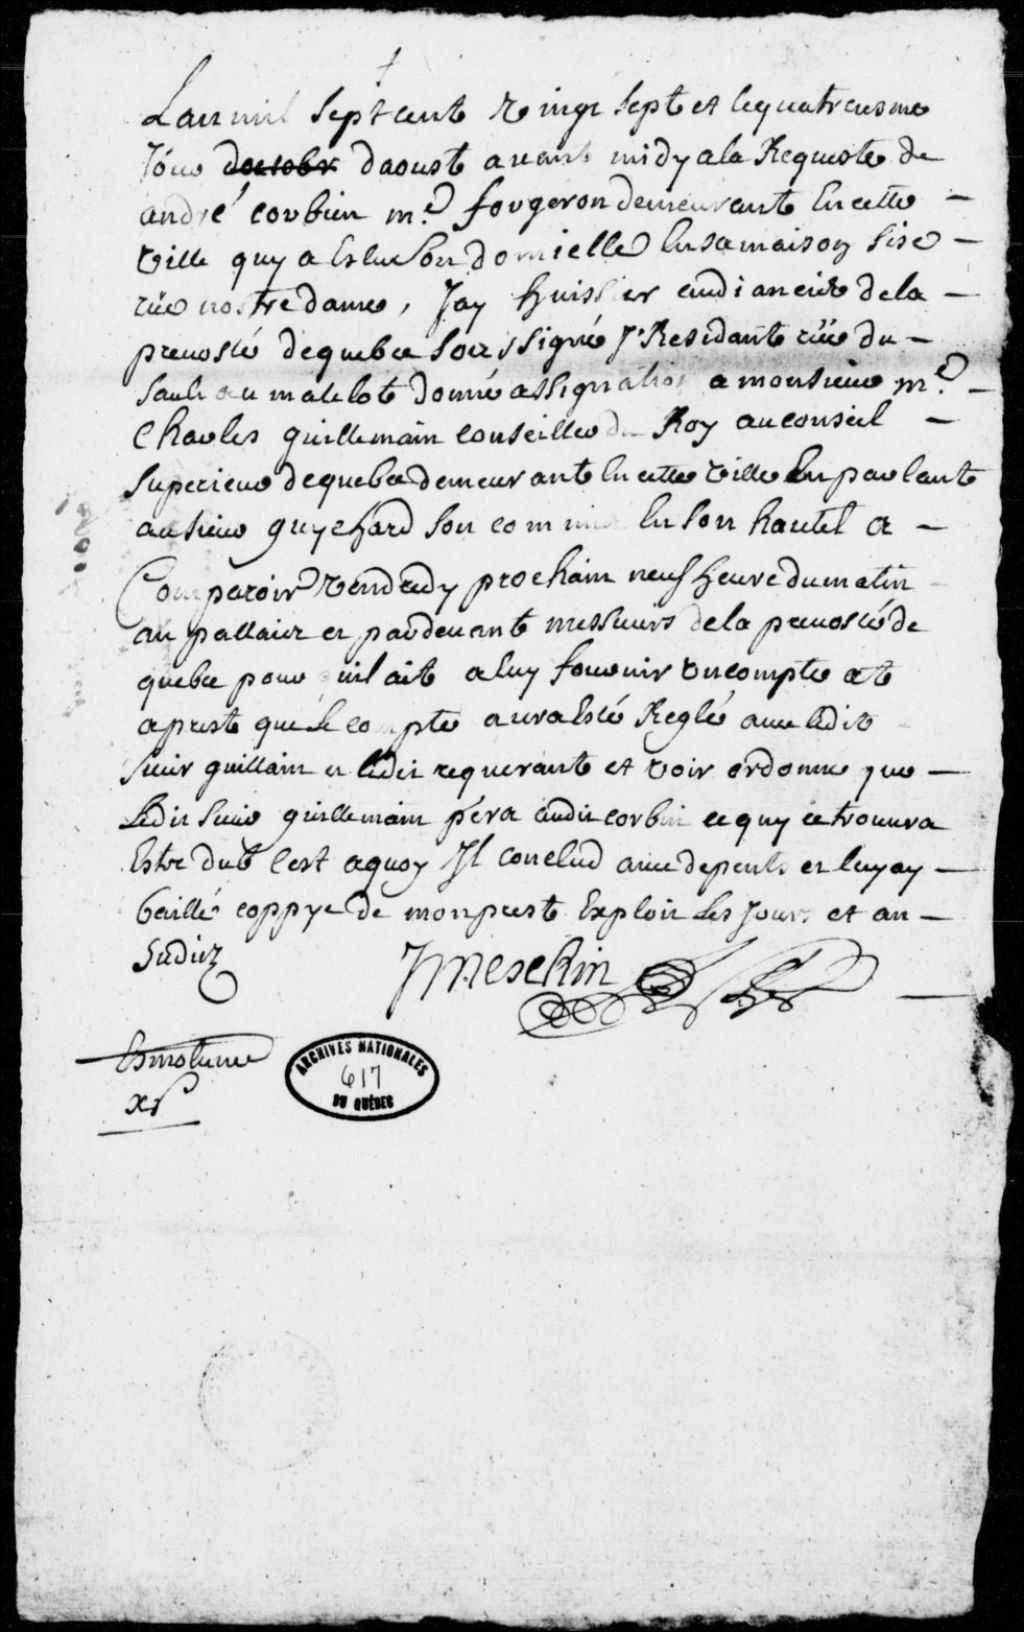 Lan mil sept cent vingt sept et le quatreiesme
Jour doctobr daoust avant midy a la Requeste de
andré corbin me forgeron demeurante En cette
ville quy a Eslue son domicille En sa maison sise
rüe nostre dame, Jay huissier audiancier de la
prevosté de quebec soussigné Residante rüe du
sault au matelote donné assignation a monsieur me
Charles guillemain conseiller du Roy au conseil
superieur de quebec demeurante En cette ville En parlante
au sieur guychard son commis En son hautel a
Comparoir vendredy prochain neuf heure du matin
au pallaiz et pardevante messieurs de la prevosté de
quebec pour quil ait a luy fournir un compte
apreste que le compte aura Esté Reglé avec ledit
sieur guillain et ledit requerante et voir ordonné que
Ledit sieur guillemain pera audit corbin ce quy ce trouvra
Estre dub cest a quoy Il conclud avec depents et luy ay
baillé coppye de mon preste Exploit Les Jours et an
Sudiz
JMeschin
xs
ARCHIVES NATIONALES
617
DU QUÉBEC